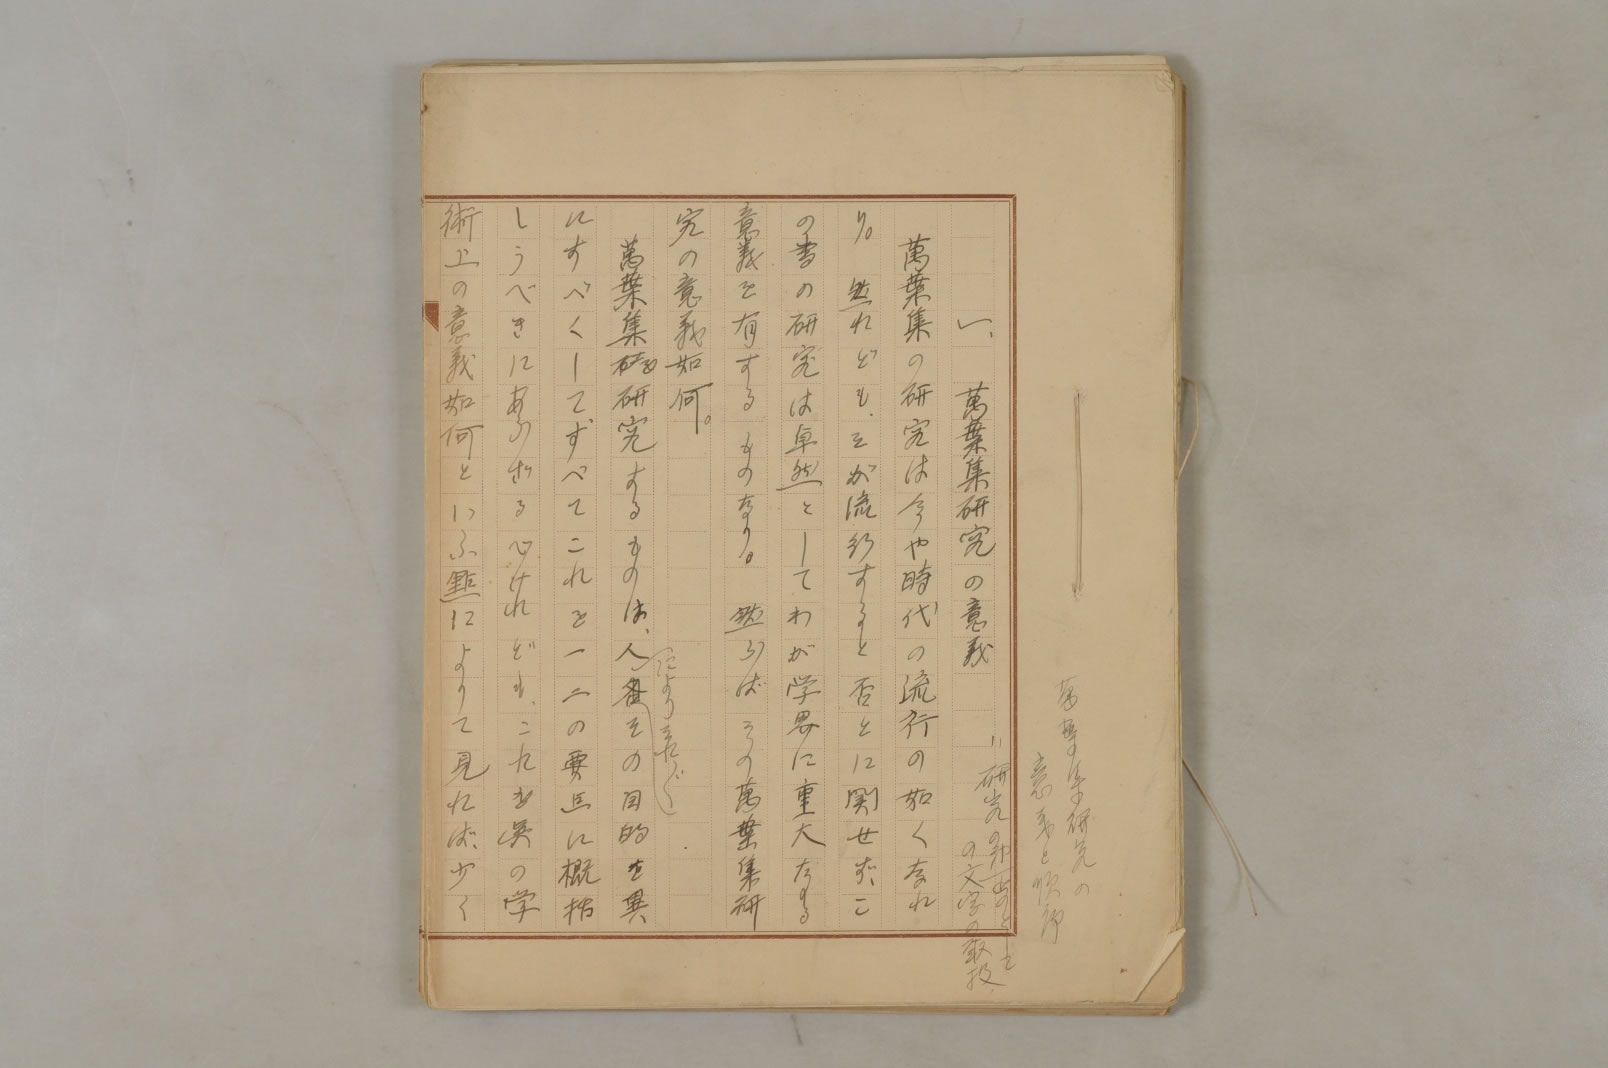 萬葉集研究の
意義と
一、萬葉集研究の意義
研究の
の文字の取扱
萬葉集の研究は今や時代の流行の如くなれ
り。然れども、そが流行すると否とに関せず、こ
の書の研究は卓然としてわが学界に重大なる
意義を有するものなり。然らばその萬葉集研
究の意義如何。
により
萬葉集を研究するものは、人その目的を異
にすべくしてすべてこれを一二の要点に概括
しうべきにあらざるべけれども、これを吴の学
術上の意義如何といふ點によりて見れば、少く